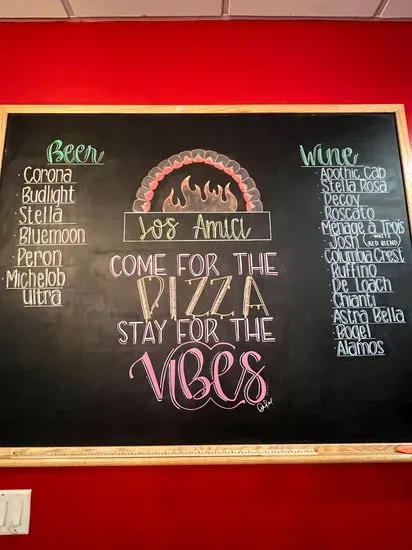 Beer
Corona
Budlight
Stella
Bluemoon
Peron
Michelob
Ultra
Los Amici
COME FOR THE
PIZZA
STAY FOR THE
VIBES
Wine
Apothic Cab
Stella Rosa
Decoy
Roscato
Menage a Trois
Josh WHITE
RED BLEND
Columbia Crest
Ruffino
De Loach
Chianti
Astra Bella
Bogel
Alamos